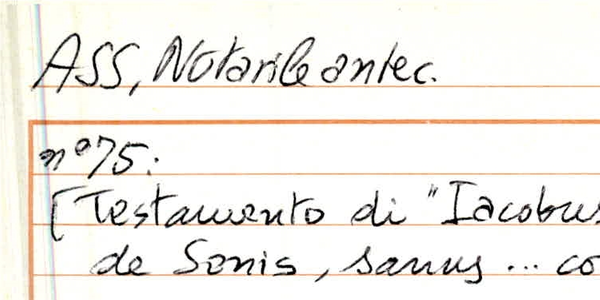 ASS, Notarile antec.
n° 75:
[Testamento di "Iacobus
de Sonis, sanus ... co